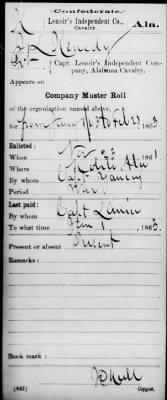 Confederate.
K
Lenoir's Independent Co., Cavalry.
Ala.
Kenedy
Capt. Lenoir's Independent Company, Alabama Cavalry.
Appears on
Company Muster Roll
of the organization named above,
for from 186
Enlisted:
When Nov 23, 1861
Where Mobile Ala
By whom Capt
Period War
Last paid:
By whom Capt
To what time 1, 1863
Present or absent Present
Remarks:
Book mark:
(642)
Copyist.